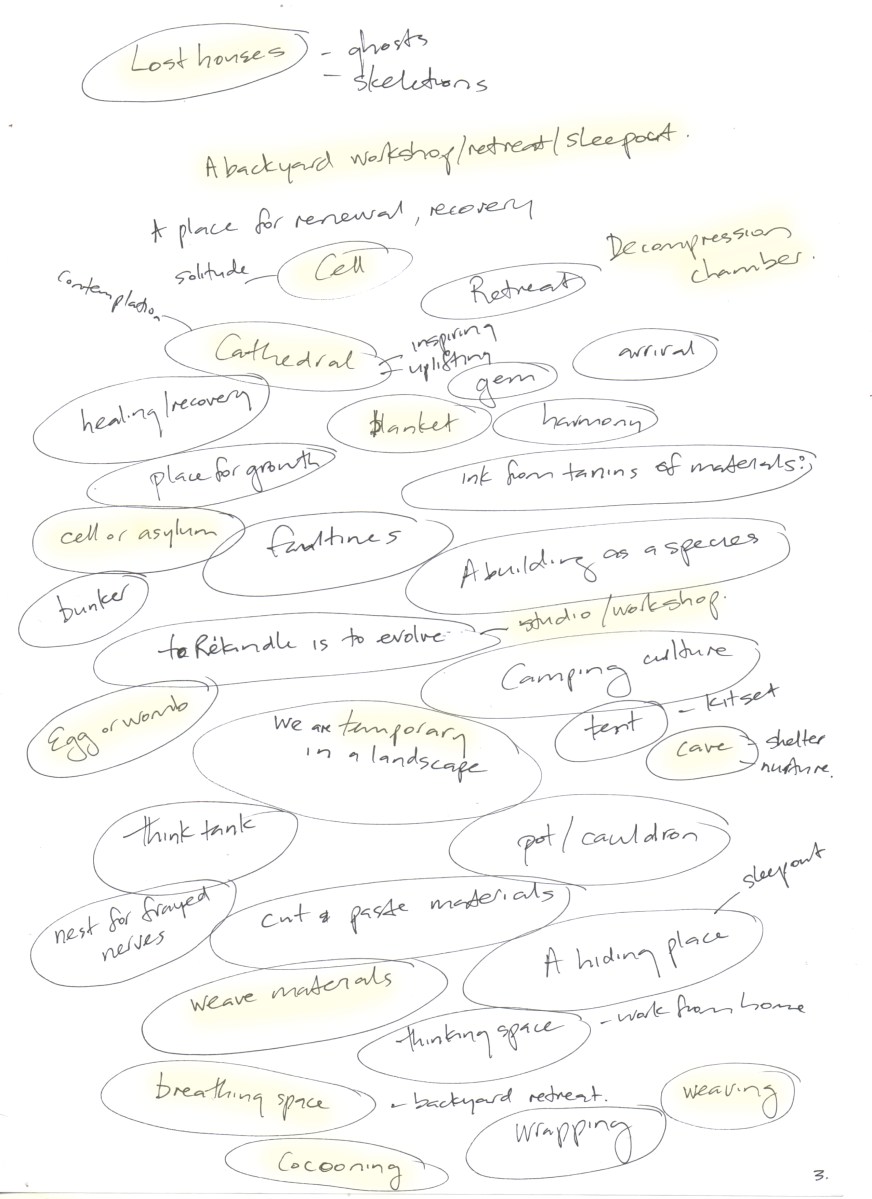 Lost houses
- ghosts
- skeletons
A backyard workshop/retreat/sleepout.
A place for renewal, recovery
Decompression
chamber.
solitude
Cell
Retreat
Contemplation
Cathedral
inspiring
uplifting
gem
arrival
healing/recovery
blanket
harmony
place for growth
ink from tanins of materials?
cell or asylum
faultlines
A building as a species
bunker
studio/workshop.
to Rekindle is to evolve
Camping culture
Egg or womb
We are temporary
in a landscape
tent
- kitset
cave
shelter
nurture.
think tank
pot/cauldron
sleepout
nest for frayed
nerves
cut & paste materials
A hiding place
weave materials
thinking space
- work from home
breathing space
- backyard retreat.
weaving
wrapping
Cocooning
3.